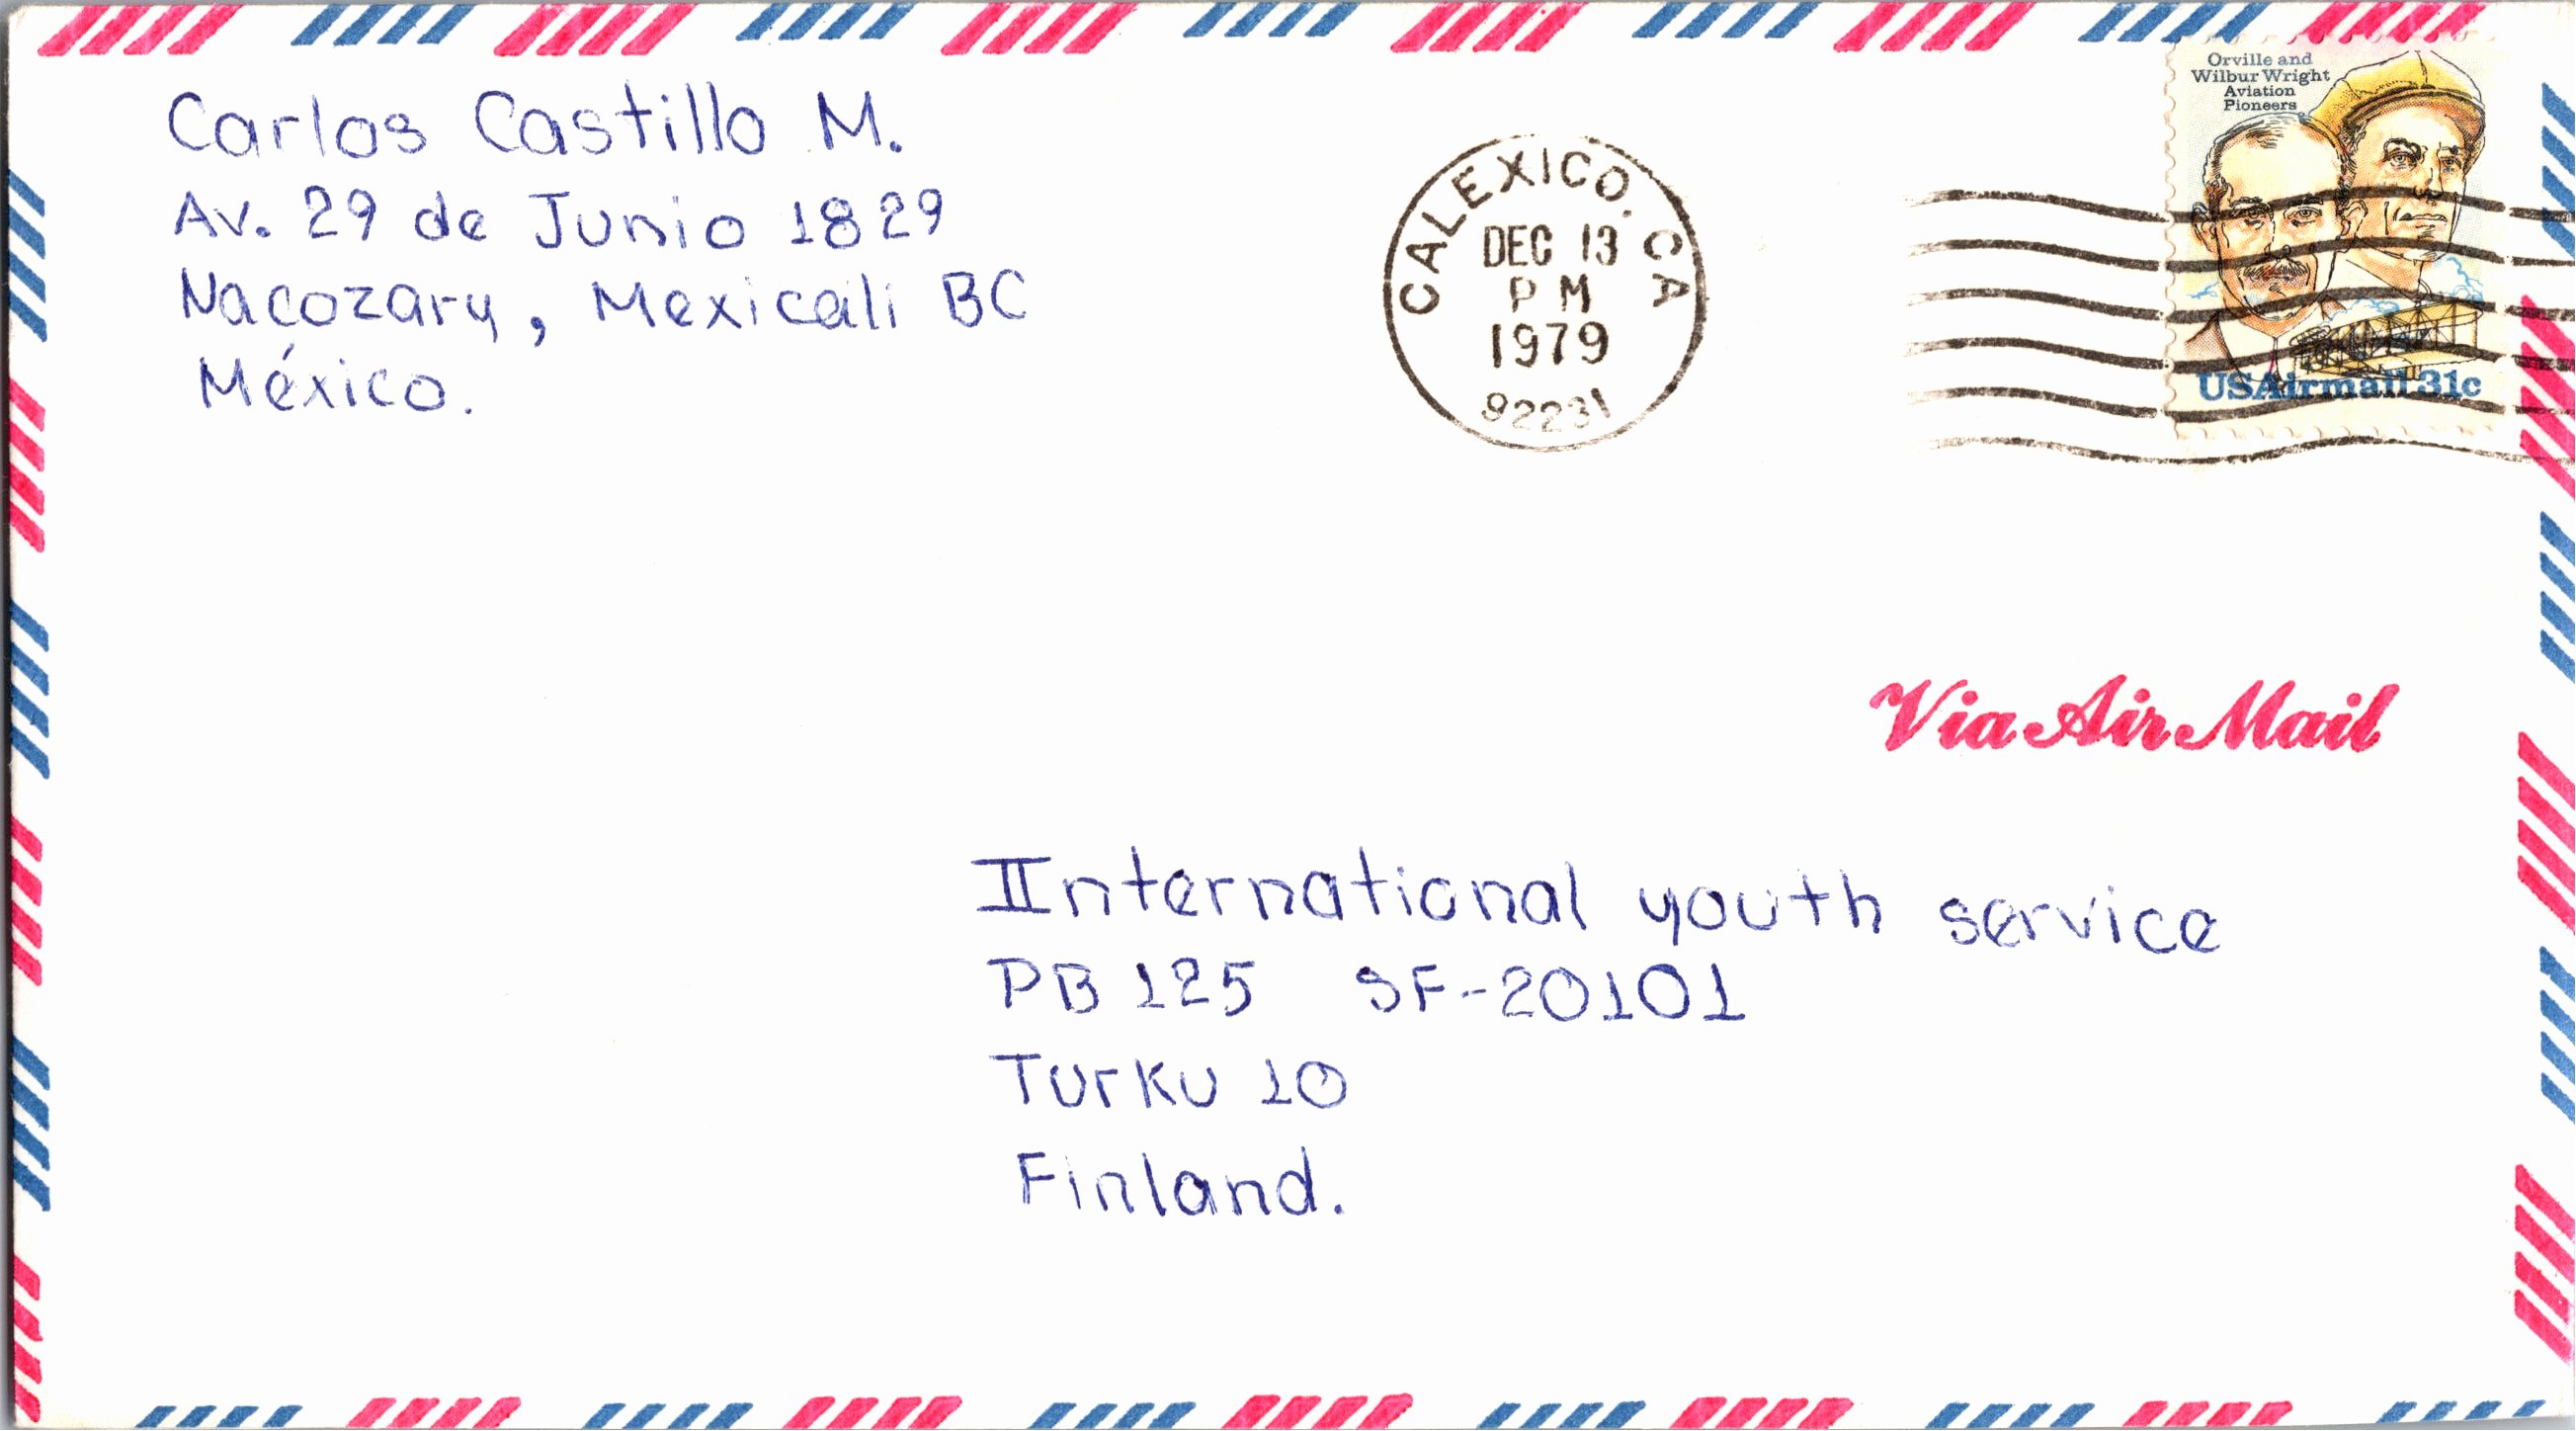 Carlos Castillo M.
Av. 29 de Junio 1829
Nacozary, Mexicali BC
México.
CALEXICO. CA
DEC 13
PM
1979
92231
Orville and
Wilbur Wright
Aviation
Pioneers
USAirmail 31c
Via Air Mail
IInternational youth service
PB 125 SF-20101
Turku 10
Finland.